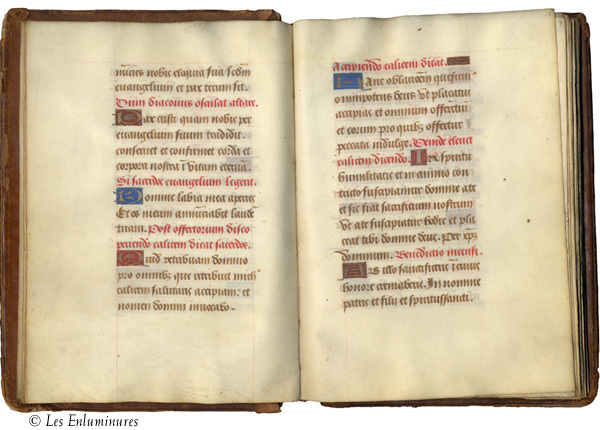 nutiẽs nobis eloquia sua sc̃dm
euangelium et pax tecum sit.
Dum diaconus osculat altare.
Pax cristi quam nobis per
euangelium suum tradidit
conseruet et confirmet corda et
corpora nostra ĩ vitam eternã.
Si sacerdos euangelium legerit.
Domine labia mea aperies
Et os meum annũciabit laudẽ
tuam. Post offertorium disco
periendo calicem dicat sacerdos.
Quid retribuam domino
pro omnibus que retribuit michi
calicem salutaris accipiam: et
nomen domini inuocabo.
Accipiendo calicem dicat.
Hanc oblacionẽ quesum
omnipotens deus vt placatus
accipias et omnium offerẽtiũ
et eorum pro quibus offertur
peccata indulge. Deinde eleuet
calicem dicendo. In spiritu
humilitatis et in animo con
trito suscipiamur domine a te
et sic fiat sacrificium nostrum
vt a te suscipiatur hodie et pla
ceat tibi domine deus. Per xp̃m
dominum. Benedictio incensi.
Ab illo sanctificeris ĩ cuius
honore cremaberis. In nomine
patris et filij et spiritussancti.
© Les Enluminures